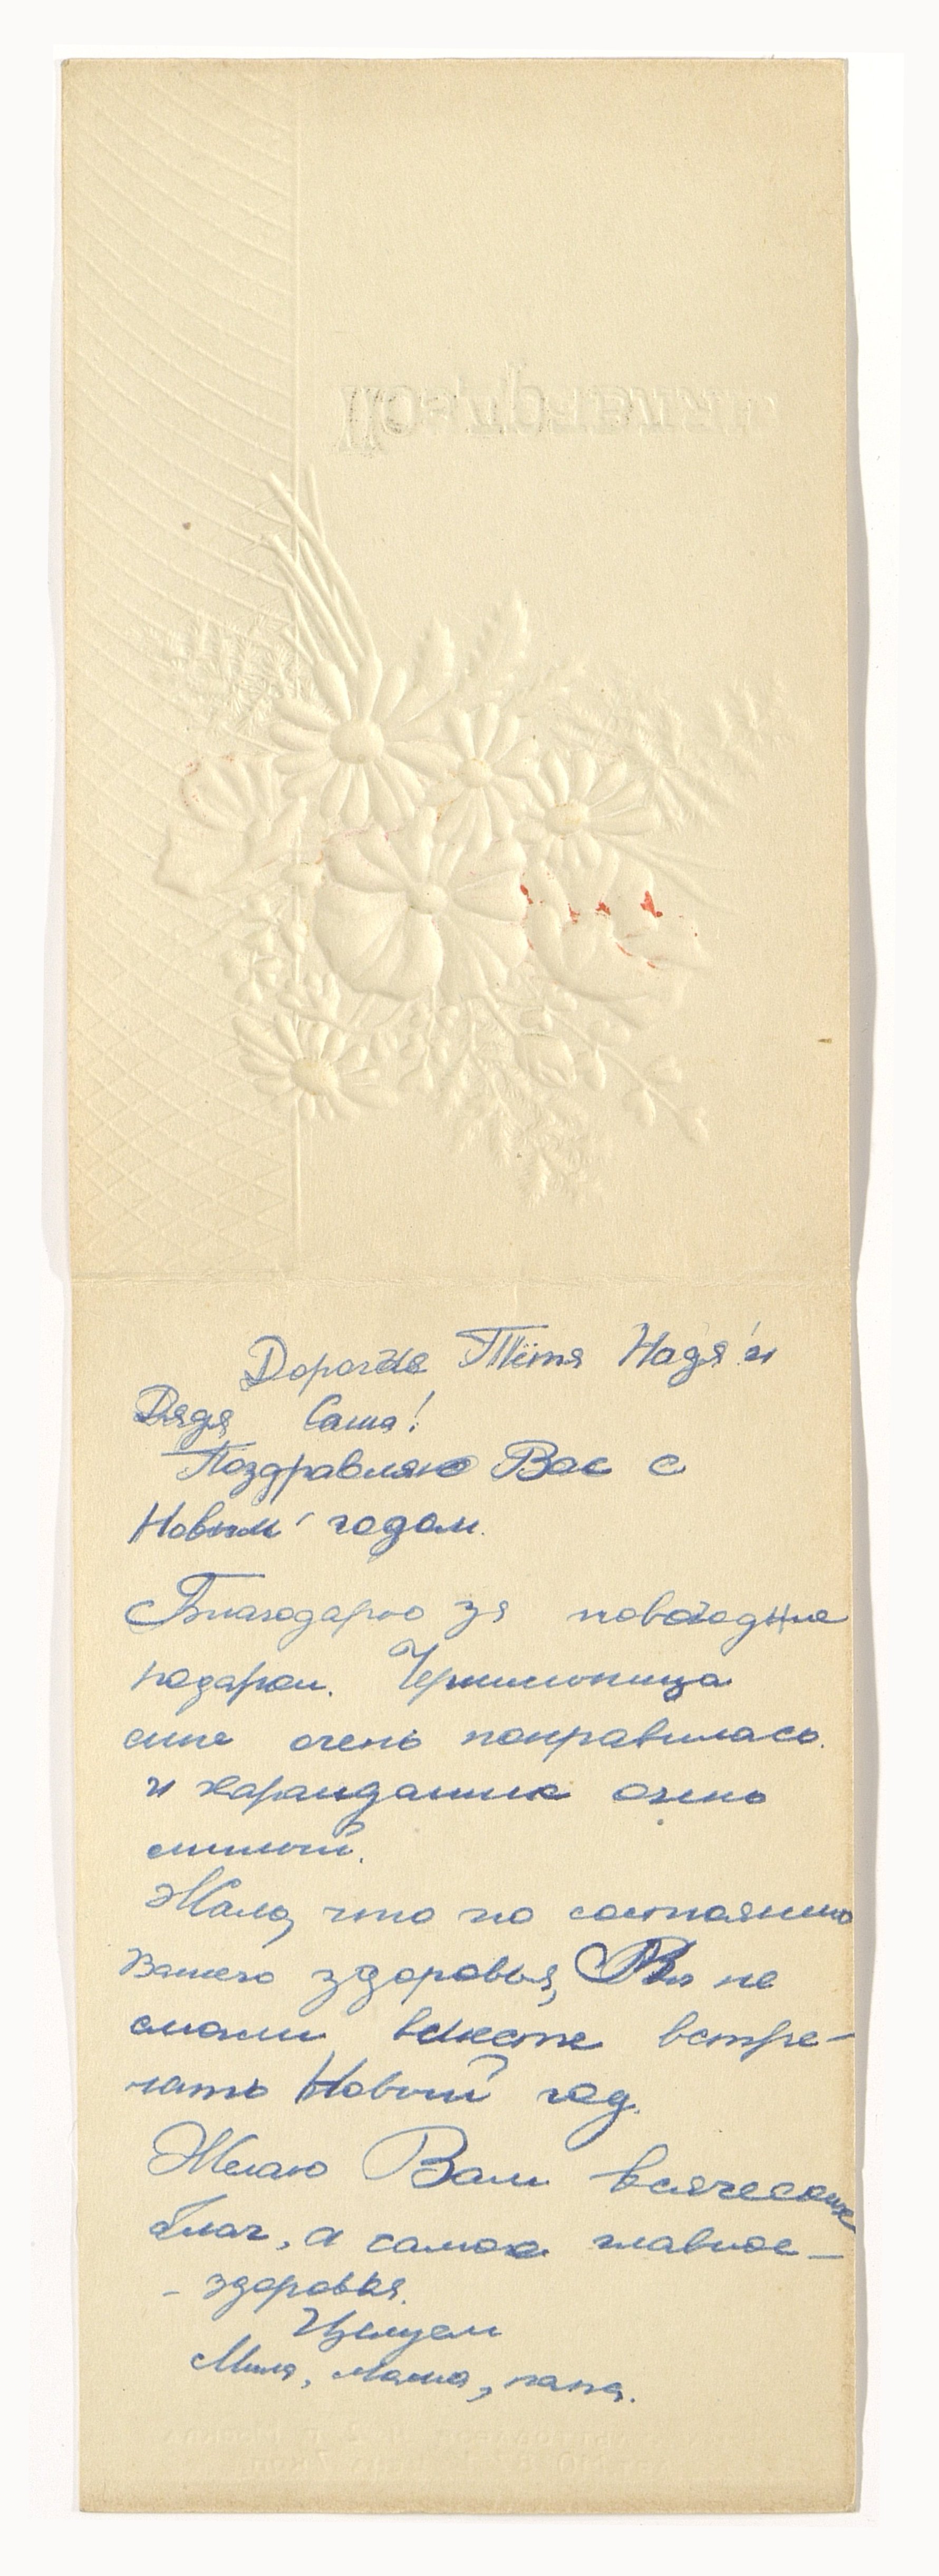 Поздравляю
Дорогая Тётя Надя и
Дядя Саша!
Поздравляю Вас с
Новым годом.
Благодарю за новогодние
подарки. Чернильница
мне очень понравилась.
и карандашик очень
милый.
Жаль, что по состоянию
Вашего здоровья, Вы не
смогли вместе встре-
чать Новый год.
Желаю Вам всяческих
благ, а самое главное –
– здоровья.
Целуем
Миля, мама, папа.